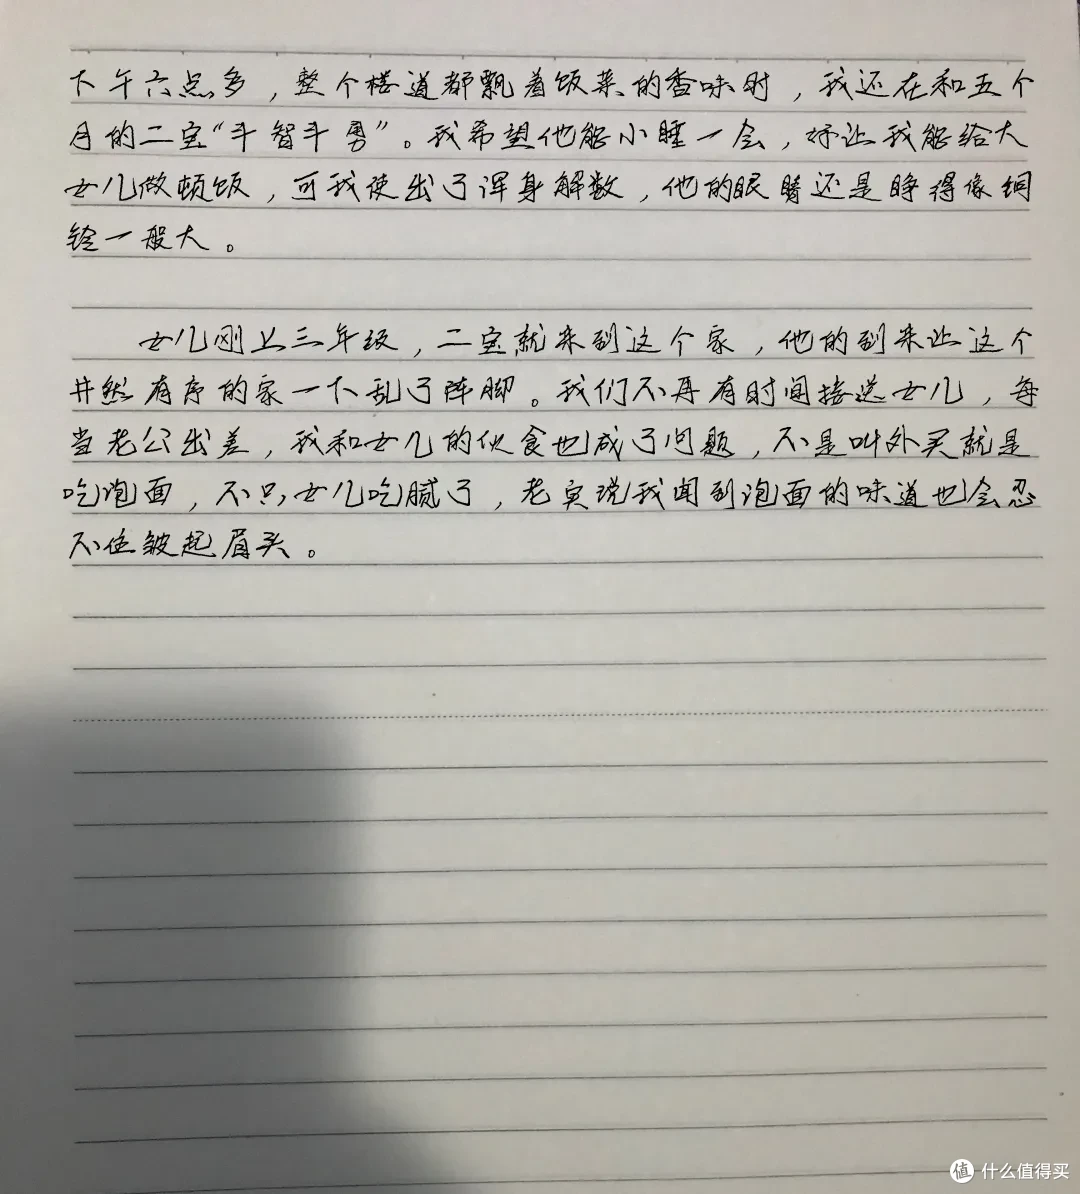 下午六点多，整个楼道都飘着饭菜的香味时，我还在和五个
月的二宝“斗智斗勇”。我希望他能小睡一会，好让我能给大
女儿做顿饭，可我使出了浑身解数，他的眼睛还是睁得像铜
铃一般大。
女儿刚上三年级，二宝就来到这个家，他的到来让这个
井然有序的家一下乱了阵脚。我们不再有时间接送女儿，每
当老公出差，我和女儿的伙食也成了问题，不是叫外卖就是
吃泡面，不只女儿吃腻了，老实说我闻到泡面的味道也会忍
不住皱起眉头。
值 什么值得买